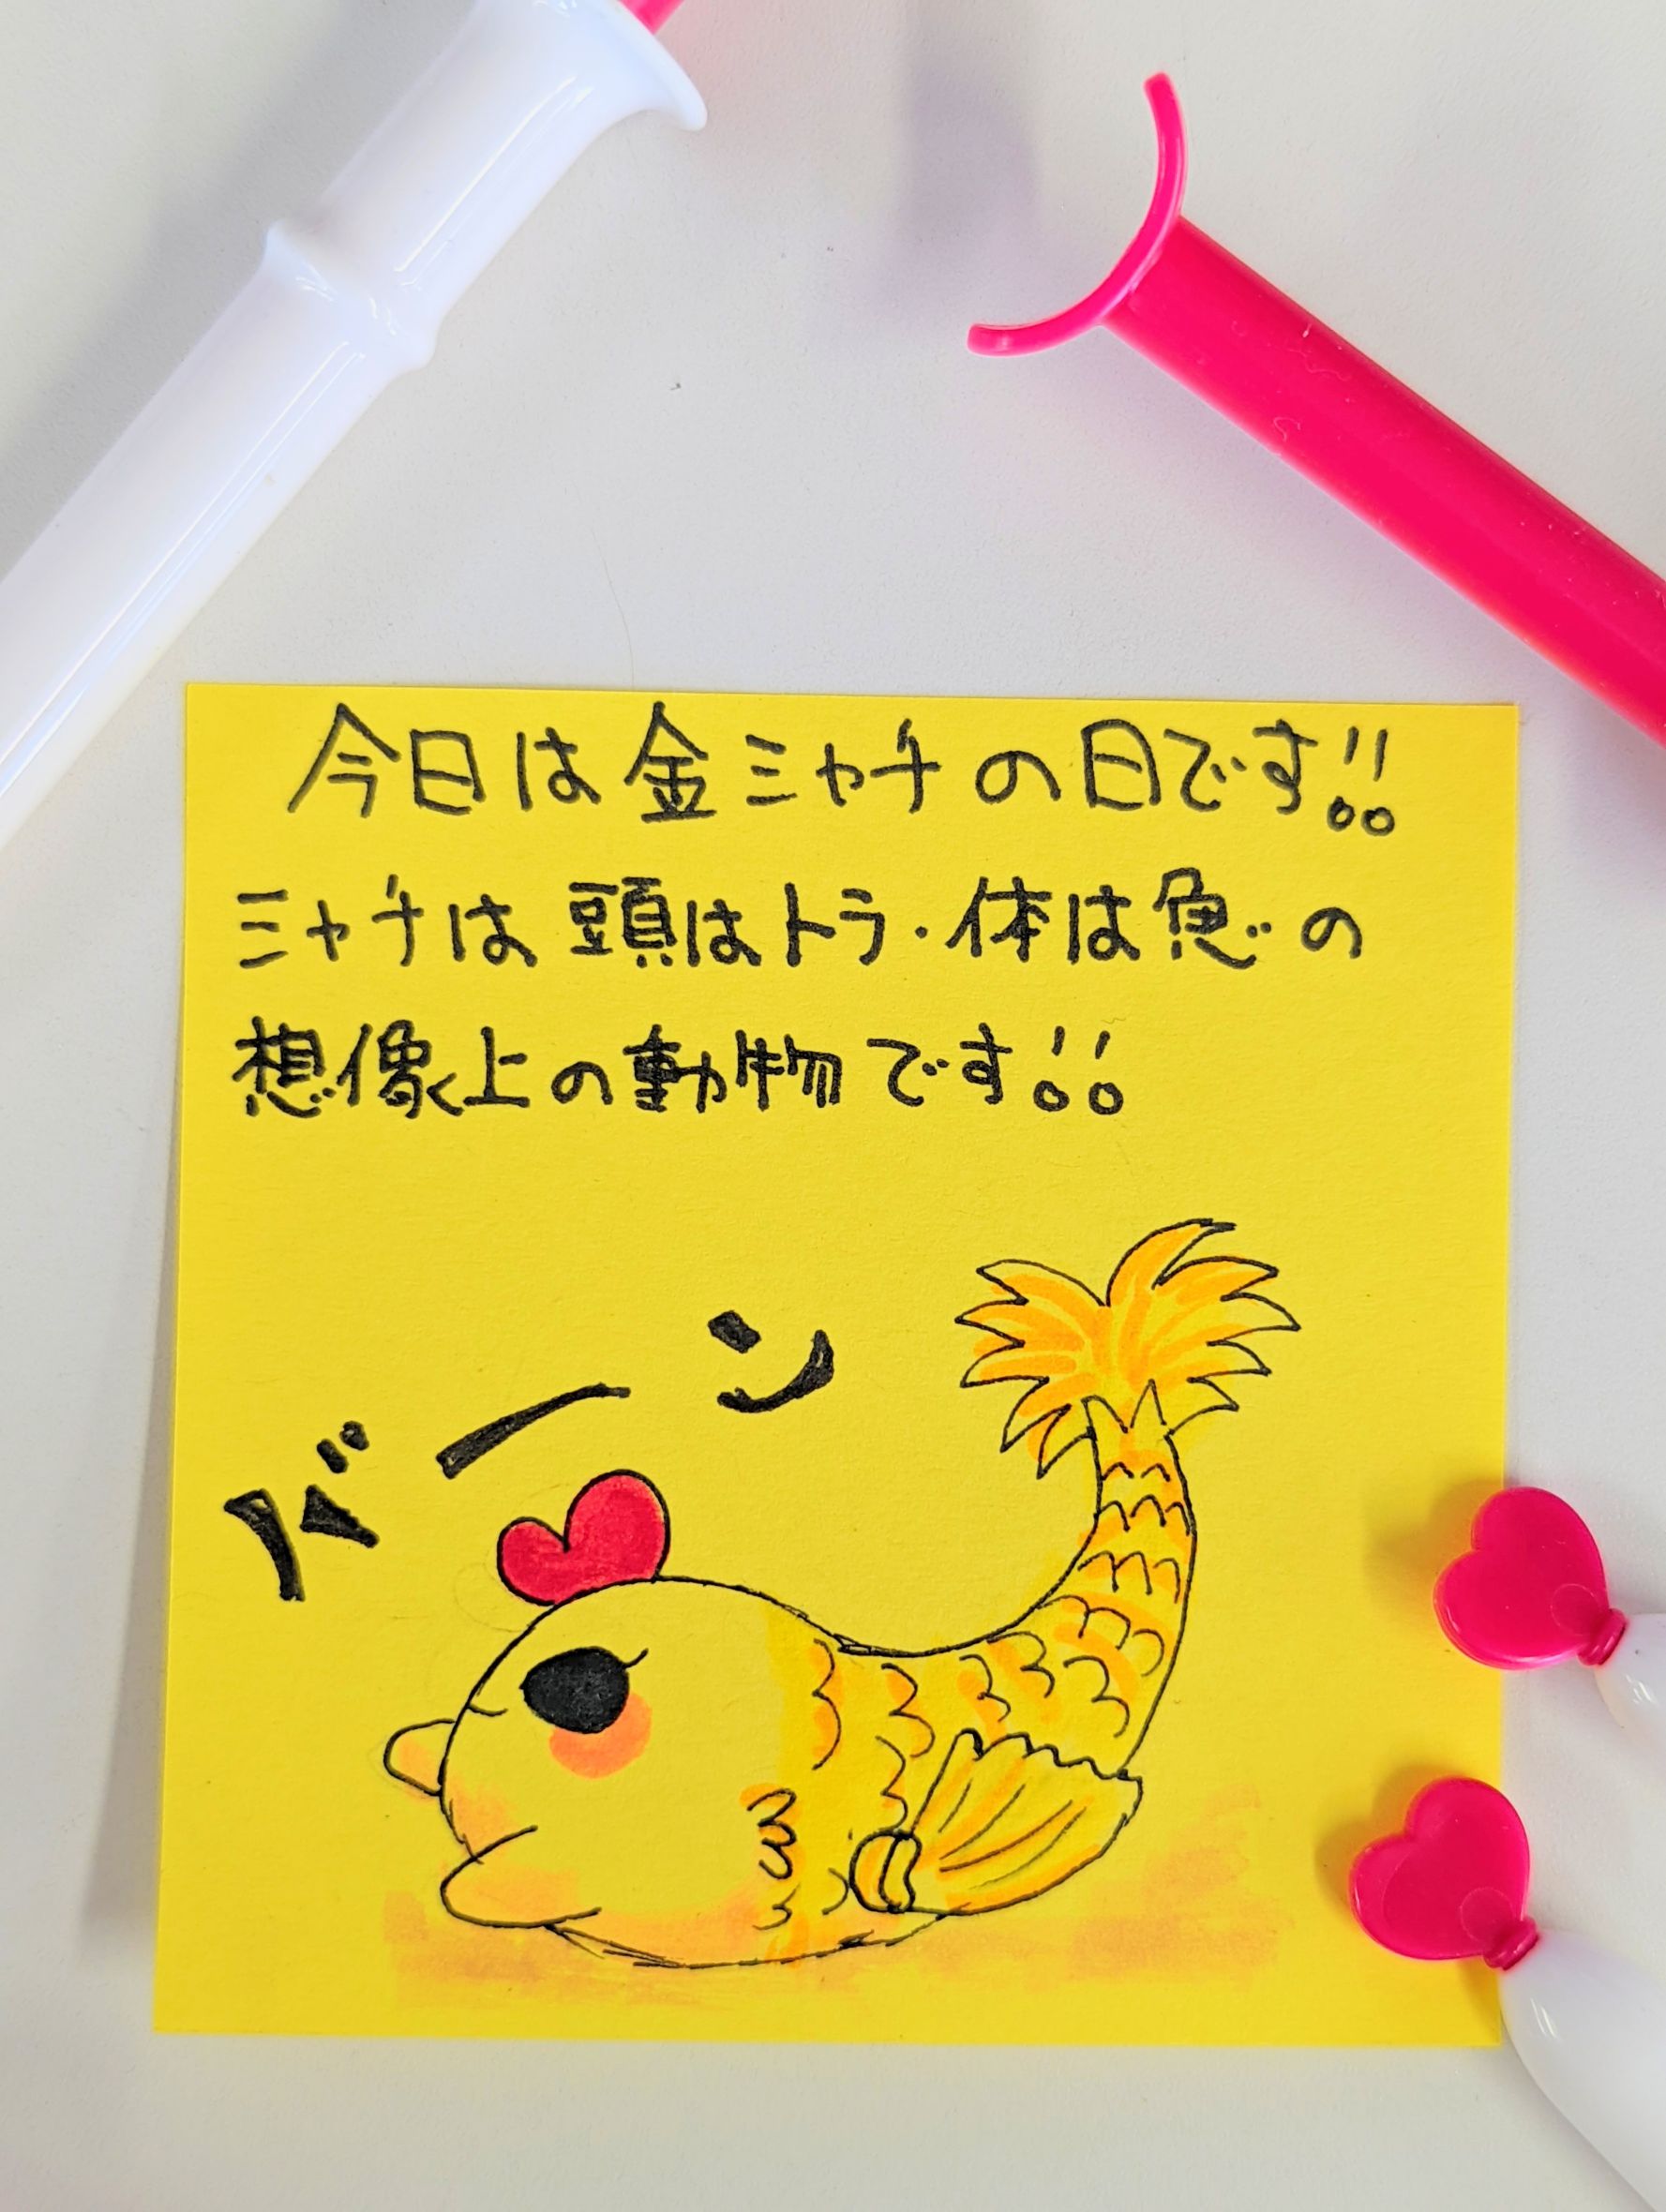 今日は金シャチの日です!!
シャチは頭はトラ・体は魚の
想像上の動物です!!
バーン